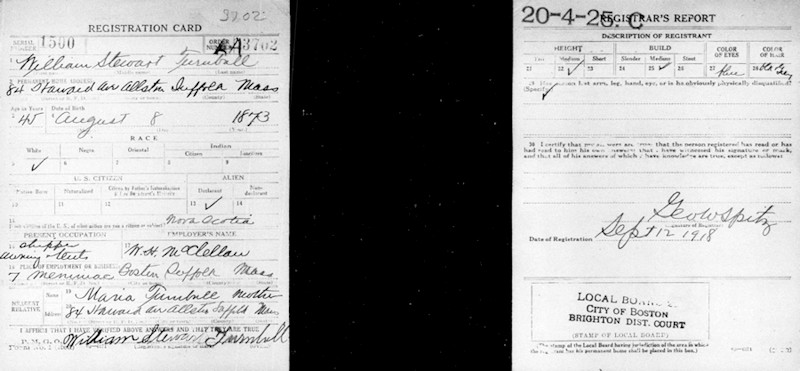 3702
REGISTRATION CARD
SERIAL NUMBER 1500 ORDER NUMBER A3702
1 William Stewart Turnbull
2 PERMANENT HOME ADDRESS:
84 Harvard av Allston Suffolk Mass
Age in Years Date of Birth
3 45 4 August 8 1873
RACE
White Negro Oriental Indian
Citizen Noncitizen
5 ✓ 6 7 8 9
U. S. CITIZEN ALIEN
Native Born Naturalized Citizen by Father's Naturalization Before Registrant's Majority Declarant Non-declarant
10 11 12 13 ✓ 14
15
If not a citizen of the U. S., of what nation are you a citizen or subject? Nova Scotia
PRESENT OCCUPATION EMPLOYER'S NAME
16 Shipper 17 W.H. McClellan
awning & tents
18 PLACE OF EMPLOYMENT OR BUSINESS:
7 Merrimac Boston Suffolk Mass
NEAREST RELATIVE Name 19 Maria Turnbull mother
Address 20 84 Harvard av Allston Suffolk Mass
I AFFIRM THAT I HAVE VERIFIED ABOVE ANSWERS AND THAT THEY ARE TRUE.
P. M. G. O.
Form No. 1 William Stewart Turnbull
20-4-25. C
REGISTRAR'S REPORT
DESCRIPTION OF REGISTRANT
HEIGHT BUILD COLOR OF EYES COLOR OF HAIR
Tall Medium Short Slender Medium Stout
21 22 ✓ 23 24 25 ✓ 26 27 Blue 28
29 Has person lost arm, leg, hand, eye, or is he obviously physically disqualified?
(Specify.)
30 I certify that my answers are true; that the person registered has read or has
had read to him his own answers; that I have witnessed his signature or mark,
and that all of his answers of which I have knowledge are true, except as follows:
Geo W Spitz
(Signature of Registrar)
Date of Registration Sept 12 1918
LOCAL BOARD
CITY OF BOSTON
BRIGHTON DIST. COURT
(STAMP OF LOCAL BOARD)
(The stamp of the Local Board having jurisdiction of the area in which
the registrant has his permanent home shall be placed in this box.)